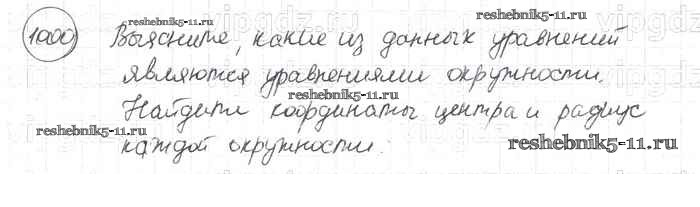 1000 Выясните, какие из данных уравнений
являются уравнениями окружности.
Найдите координаты центра и радиус
каждой окружности.
reshebnik5-11.ru
reshebnik5-11.ru
reshebnik5-11.ru
reshebnik5-11.ru
reshebnik5-11.ru